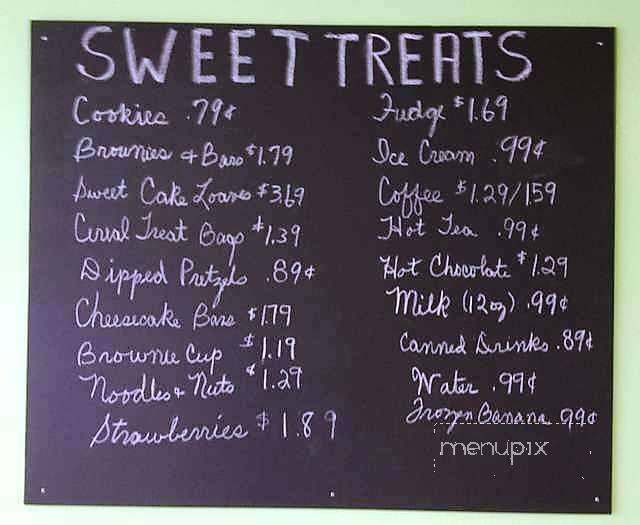 SWEET TREATS
Cookies .79¢
Brownies & Bars $1.79
Sweet Cake Loaves $3.69
Cereal Treat Bags $1.39
Dipped Pretzels .89¢
Cheesecake Bars $1.79
Brownie Cup $1.19
Noodles & Nuts $1.29
Strawberries $1.89
Fudge $1.69
Ice Cream .99¢
Coffee $1.29/1.59
Hot Tea .99¢
Hot Chocolate $1.29
Milk (12oz) .99¢
Canned Drinks .89¢
Water .99¢
Frozen Banana .99¢
menupix